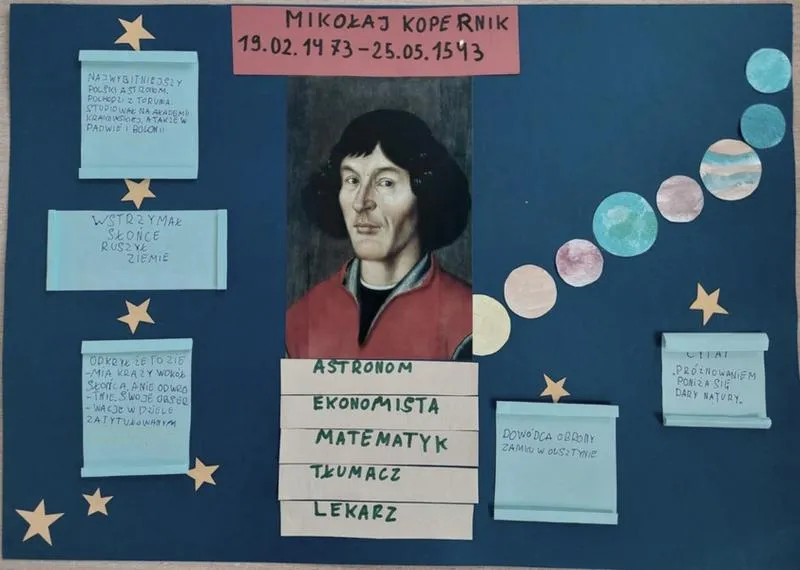 MIKOŁAJ KOPERNIK
19.02.1473-25.05.1543
NAJWYBITNIEJSZY
POLSKI ASTRONOM.
POCHODZI Z TORUNIA
STUDIOWAŁ NA AKADEMII
KRAKOWSKIEJ, A TAKŻE W
PADWIE I BOLONII
WSTRZYMAŁ
SŁOŃCE
RUSZYŁ
ZIEMIE
ODKRYŁ ŻE TO ZIE
-MIA KRĄŻY WOKÓŁ
SŁOŃCA, A NIE ODWRO
-TNIE. SWOJE OBSER
-WACJE W DZIELE
ZATYTUŁOWANYM
ASTRONOM
EKONOMISTA
MATEMATYK
TŁUMACZ
LEKARZ
DOWÓDCA OBRONY
ZAMKU W OLSZTYNIE
CYTAT
"PRÓŻNOWANIEM
PONIŻA SIĘ
DARY NATURY.